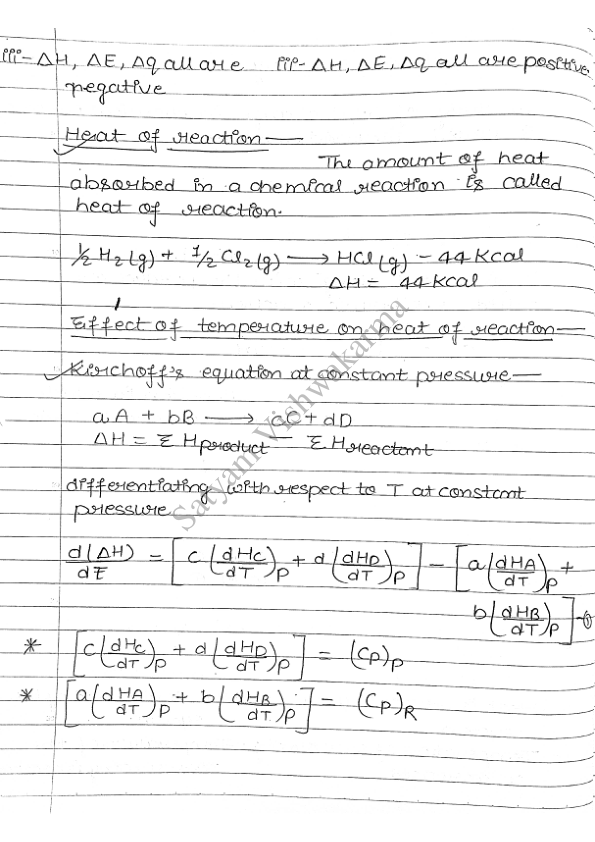 iii- ΔH, ΔE, Δq all are    iii- ΔH, ΔE, Δq all are positive
negative
Heat of reaction —
The amount of heat
absorbed in a chemical reaction is called
heat of reaction.
1/2 H2(g) + 1/2 Cl2(g) → HCl(g) - 44 Kcal
ΔH = 44 Kcal
Effect of temperature on heat of reaction —
Kirchoff's equation at constant pressure —
aA + bB → cC + dD
ΔH = Σ Hproduct - Σ Hreactant
differentiating with respect to T at constant
pressure
d(ΔH)/dE = [c(dHC/dT)P + d(dHD/dT)P] - [a(dHA/dT)P +
b(dHB/dT)P] -①
* [c(dHC/dT)P + d(dHD/dT)P] = (CP)P
* [a(dHA/dT)P + b(dHB/dT)P] = (CP)R
Satyam Vishwakarma